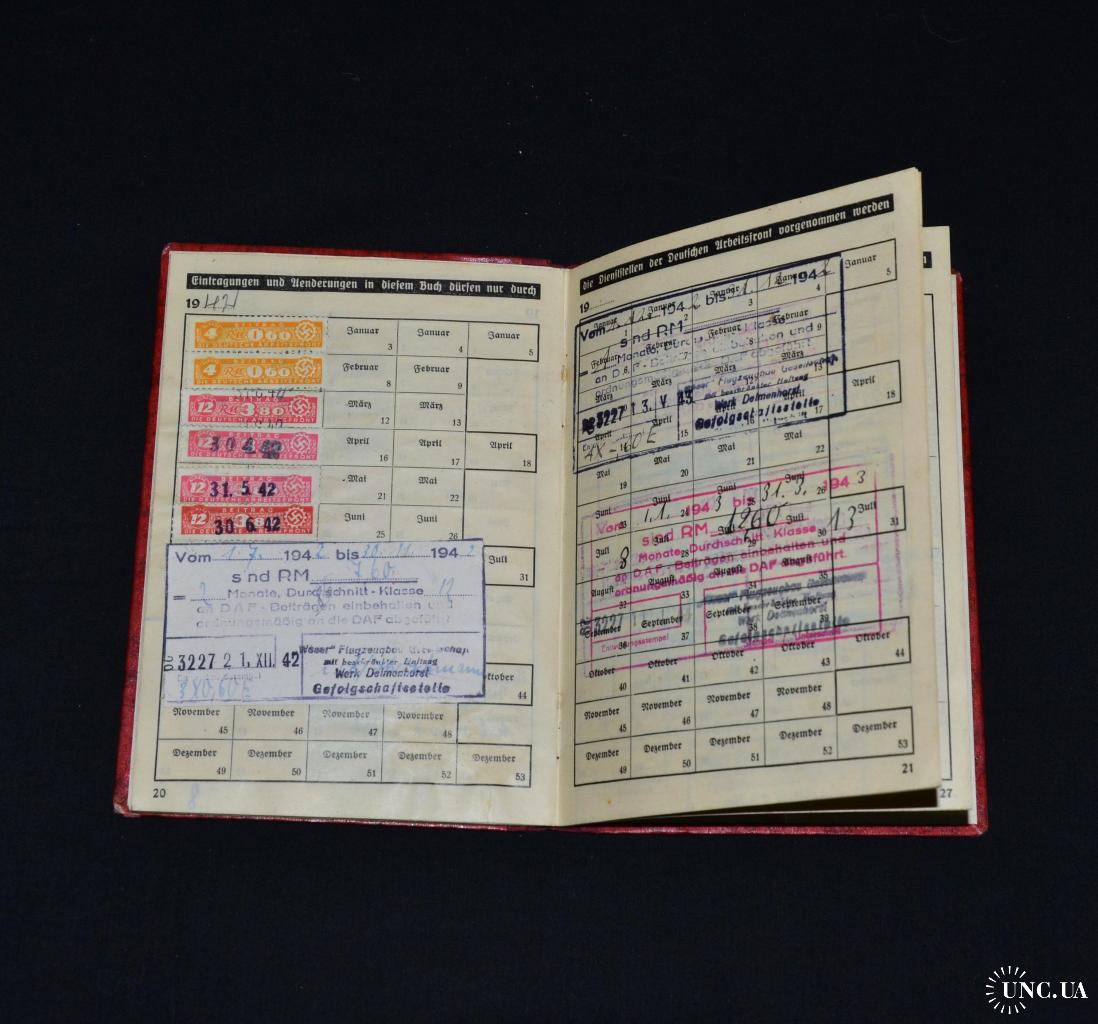 Eintragungen und Aenderungen in diesem Buch dürfen nur durch
1942
4 BEITRAG RM 0.60
DIE DEUTSCHE ARBEITSFRONT
Januar 3
Januar 4
Januar 5
4 BEITRAG RM 0.60
DIE DEUTSCHE ARBEITSFRONT
Februar 8
Februar 9
12 BEITRAG RM 3.80
DIE DEUTSCHE ARBEITSFRONT
März 12
März 13
12
30.4.42
DIE DEUTSCHE ARBEITSFRONT
April 16
April 17
April 18
BEITRAG
31.5.42
DIE DEUTSCHE ARBEITSFRONT
Mai 21
Mai 22
12 BEITRAG
30.6.42
Juni 25
Juni 26
Juli 31
Vom 1.7. 1942 bis 30.11. 1942
sind RM 7.60
= 2 Monate, Durchschnitt-Klasse 12
an DAF-Beiträgen einbehalten und
ordnungsmäßig an die DAF abgeführt.
3227 21. XII. 42
"Weser" Flugzeugbau Gesellschaft
mit beschränkter Haftung
Werk Delmenhorst
Gefolgschaftsstelle
Oktober 44
November 45
November 46
November 47
November 48
Dezember 49
Dezember 50
Dezember 51
Dezember 52
Dezember 53
20
8
die Dienststellen der Deutschen Arbeitsfront vorgenommen werden
19
Januar 1
Januar 2
Januar 3
Januar 4
Januar 5
Vom 1942 bis 1942
sind RM
Monate, Durchschnitt-Klasse
an DAF-Beiträgen einbehalten und
ordnungsmäßig an die DAF abgeführt
3227 13. V. 43
"Weser" Flugzeugbau Gesellschaft
mit beschränkter Haftung
Werk Delmenhorst
Gefolgschaftsstelle
Februar 6
Februar 7
Februar 8
Februar 9
März
März 12
März 13
April 14
April 15
April 16
April 17
April 18
Mai 19
Mai 20
Mai 21
Mai 22
Juni 23
Juni 24
Juni 25
Juni 26
Vom 1.1. 1943 bis 31.3. 1943
sind RM 1260. 13
8 Monate, Durchschnitt-Klasse
an DAF-Beiträgen einbehalten und
ordnungsmäßig an die DAF abgeführt.
3227
Werk Delmenhorst
Gefolgschaftsstelle
Juli
Juli 28
Juli 29
Juli
Juli 31
August 32
August 33
August 34
August 35
September 36
September 37
September 38
September 39
Oktober 40
Oktober 41
Oktober 42
Oktober
Oktober 44
November 45
November 46
November 47
November 48
Dezember 49
Dezember 50
Dezember 51
Dezember 52
Dezember 53
21
27
UNC.UA